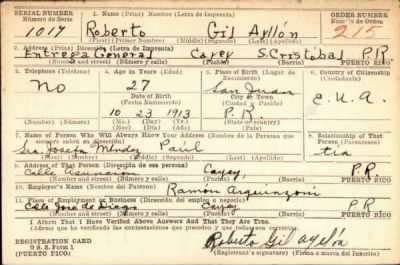 SERIAL NUMBER 1. Name (Print) Nombre (Letra de Imprenta) ORDER NUMBER
Número de Serie Número de Orden
1017 Roberto Gil Ayllón 215
(First) (Primer Nombre) (Middle) (Segundo) (Last) (Apellido)
2. Address (Print) Dirección (Letra de Imprenta)
Entrega General Cayey S. Cristóbal P.R.
(Number and street) (Número y calle) (Town) PUERTO RICO
3. Telephone (Teléfono) 4. Age in Years (Edad) 5. Place of Birth (Lugar de Nacimiento) 6. Country of Citizenship (Ciudadanía)
No 27 San Juan E.U.A.
Date of Birth (Fecha Nacimiento) City or Town (Ciudad o Pueblo)
10 23 1913 P.R.
(Mo.) (Mes) (Day) (Día) (Yr.) (Año)
7. Name of Person Who Will Always Know Your Address (Nombre de la Persona que siempre sabrá su dirección) 8. Relationship of That Person (Parentesco)
Sra. Josefa Méndez tía
(Middle) (Segundo) (Last) (Apellido)
9. Address of That Person (Dirección de esa persona)
Calle Asunción Cayey, P.R.
(Number and street) (Número y calle) (Town) PUERTO RICO
10. Employer's Name (Nombre del Patrono)
Ramón Arquinzoni
11. Place of Employment or Business (Dirección del empleo o negocio)
Calle José de Diego Cayey P.R.
(Number and street) (Número y calle) PUERTO RICO
I Affirm That I Have Verified Above Answers and That They are True.
(Afirmo que he verificado las contestaciones que preceden y que son ciertas.)
REGISTRATION CARD
D S S. Form 1
(Puerto Rico)
Roberto Gil Ayllón
(Registrant's signature) (Firma del Registrado)